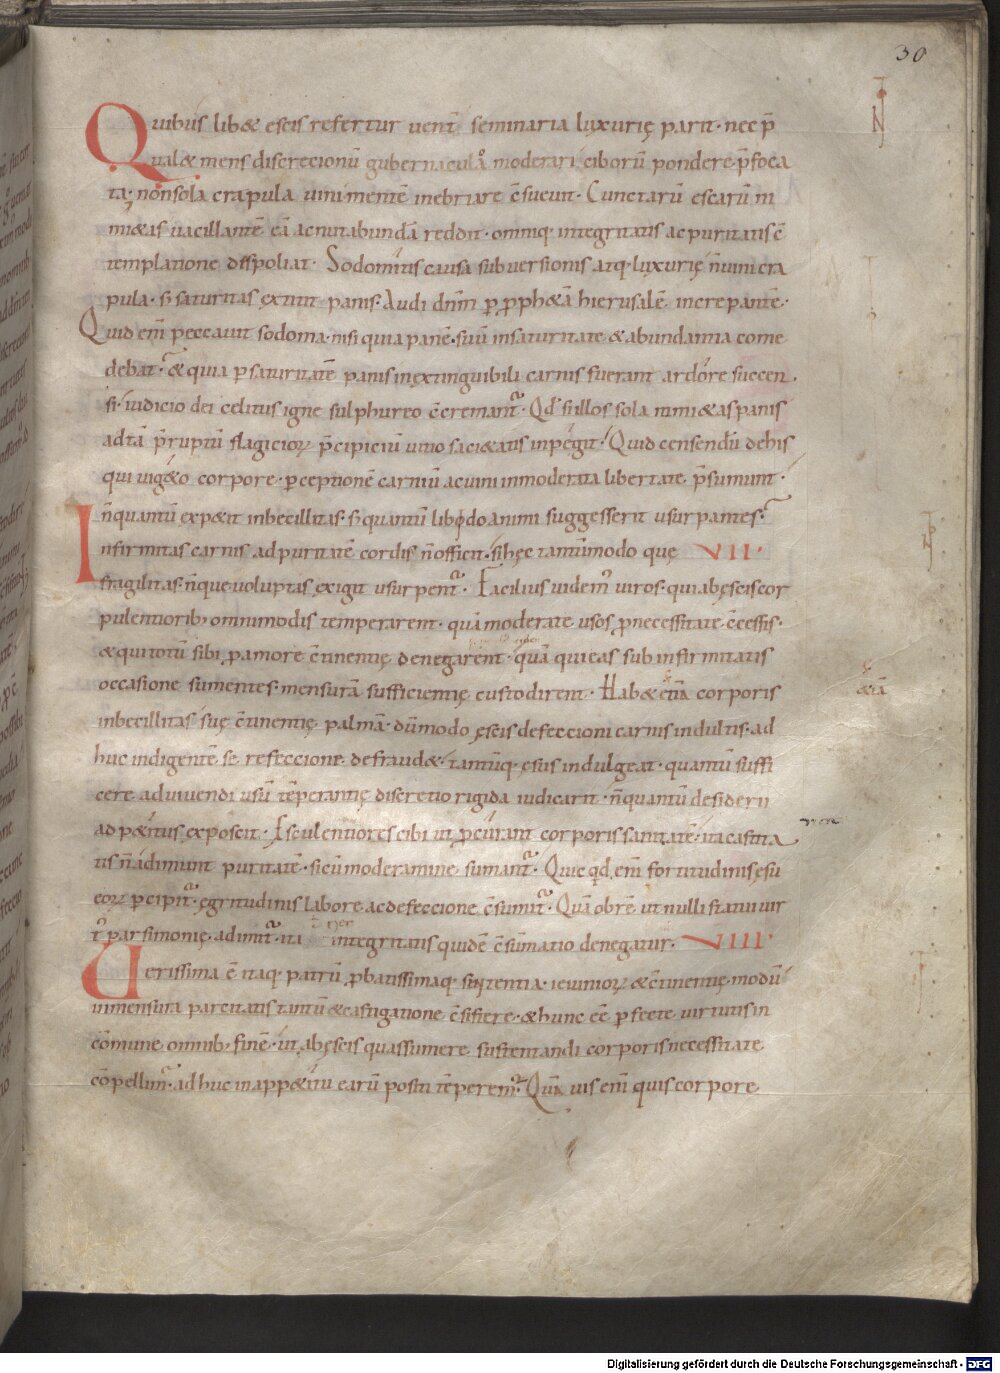 30
Quibus lib& escis refertur uent̄ seminaria luxurię parit· nec p̄
ual& mens discrecionū gubernacula moderari ciborū pondere p̄foca
ta· non sola crapula uini mentē inebriare c̄sueuit· Cunctarū escarū ni
mi&as uacillantē eā ac nutabundā reddit· omniq· integritatis ac puritatis c̄
templatione dispoliat· Sodomitis causa subuersionis atq· luxurię n̄ uini cra
pula· s; saturitas extitit panis· Audi dn̄m ꝑ ꝓph&ā hierusalē increpantē·
Quid em̄ peccauit sodoma· nisi quia panē suū in saturitate & abundantia come
debat· & quia ꝑ saturitatē panis inextinguibili carnis fuerant ardore succen
si· iudicio dei celitus igne sulphureo c̄cremant᷑· Qd̄ si illos sola nimi&as panis
ad tā p̄ruptū flagicioꝝ p̄cipiciū uitio saci&atis inpegit· Quid censendū de his
qui uig&o corpore· ꝑceptionē carniū ac uini inmoderata libertate p̄sumunt·
n̄ quantū exp&it inbecillitas· s; quantū libido animi suggesserit usurpantes·
Infirmitas carnis ad puritatē cordis n̄ officit· si hęc tantūmodo quę VII·
fragilitas· n̄ que uoluptas exigit usurpent᷑· Facilius uidem᷒ uiros· qui ab escis cor
pulentiorib; omnimodis temperarent· quā moderate usos ꝓ necessitate c̄cessis·
& qui totū sibi ꝓ amore c̄tinentię denegarent· quā qui eas sub infirmitatis
occasione sumentes mensurā sufficientię custodirent· Hab& &iā corporis
inbecillitas suę c̄tinentię palmā· dūmodo escis defeccioni carnis indultis· ad
huc indigentē se refeccione defraud&· tantūq· esus indulgeat· quantū suffi
cere ad uiuendi usū tēperantię discretio rigida iudicarit· n̄ quantū desiderii
ad p&itus exposcit· Esculentiores cibi ut ꝓcurant corporis sanitatē· ita castita
tis n̄ adimunt puritatē· si cū moderamine sumant᷑· Quicqd̄ em̄ fortitudinis esu
eoꝝ ꝑcipit᷑· egritudinis labore ac defeccione c̄sumit᷑· Quā obrē ut nulli statui uir
t᷒ parsimonię adimit᷑· ita integritatis quidē c̄sūmatio denegatur· VIII·
Uerissima ē itaq· patrū ꝓbatissimaq· sententia· ieiunioꝝ & c̄tinentię modū
in mensura parcitatis tantū & castigatione c̄sistere· & hunc eē ꝑfecte uirtutis in
cōmune omnib; finē· ut ab escis quas sumere sustentandi corporis necessitate
cōpellim᷒· adhuc in app&itu earū positi tēperem᷒· Quā uis em̄ quis corpore
&iā
Digitalisierung gefördert durch die Deutsche Forschungsgemeinschaft - DFG